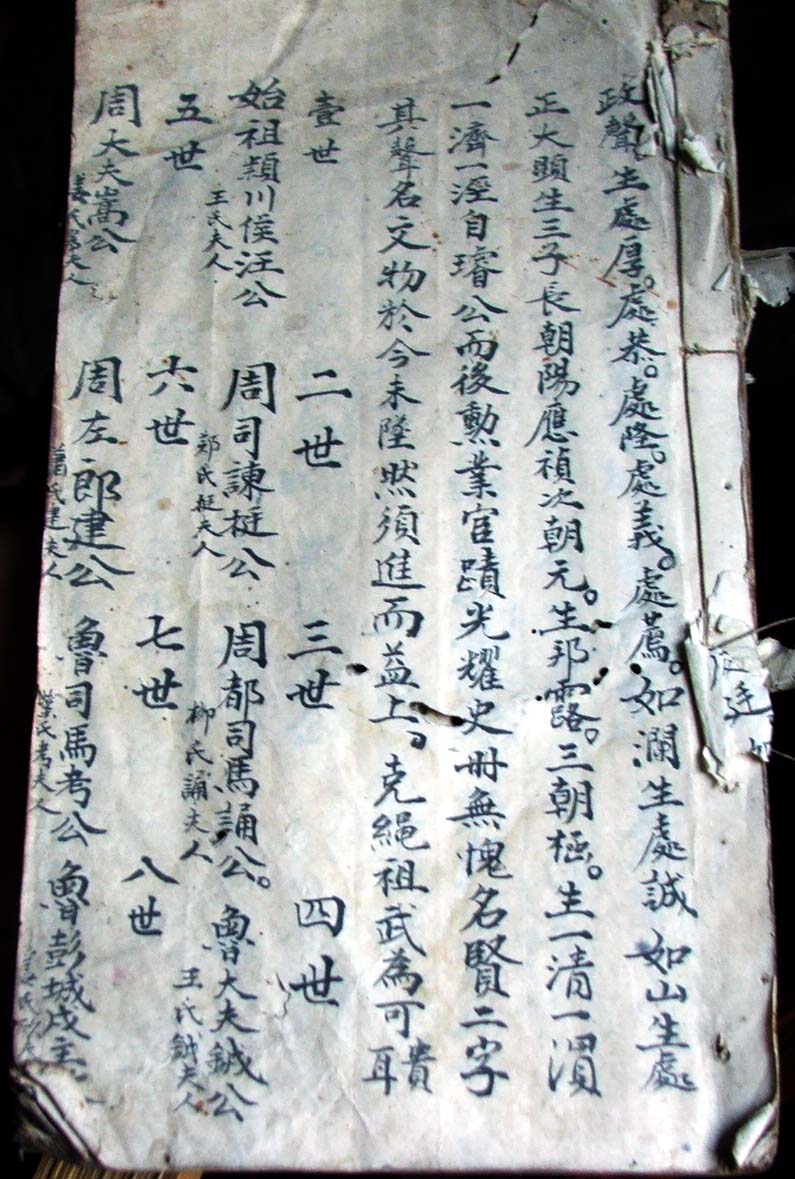 政聲。生處厚。處恭。處隆。處義。處薦。如瀾生處誠 如山生處
正大顕生三子長朝陽應禎次朝元。生邦露。三朝極。生一清一濵
一濟一溼自璿公而後勲業官蹟光耀史冊無愧名賢二字
其聲名文物於今未墜然須進而益上。克繩祖武為可貴耳
壹世 二世 三世 四世
始祖頴川侯汪公 周司諫挺公 周都司馬誦公。 魯大夫鉞公
王氏夫人 鄭氏挺夫人 柳氏誦夫人 王氏鉞夫人
五世 六世 七世 八世
周大夫嵩公 周左郎建公 魯司馬考公 魯彭城戍主
姜氏嵩夫人 蕭氏建夫人 葉氏考夫人